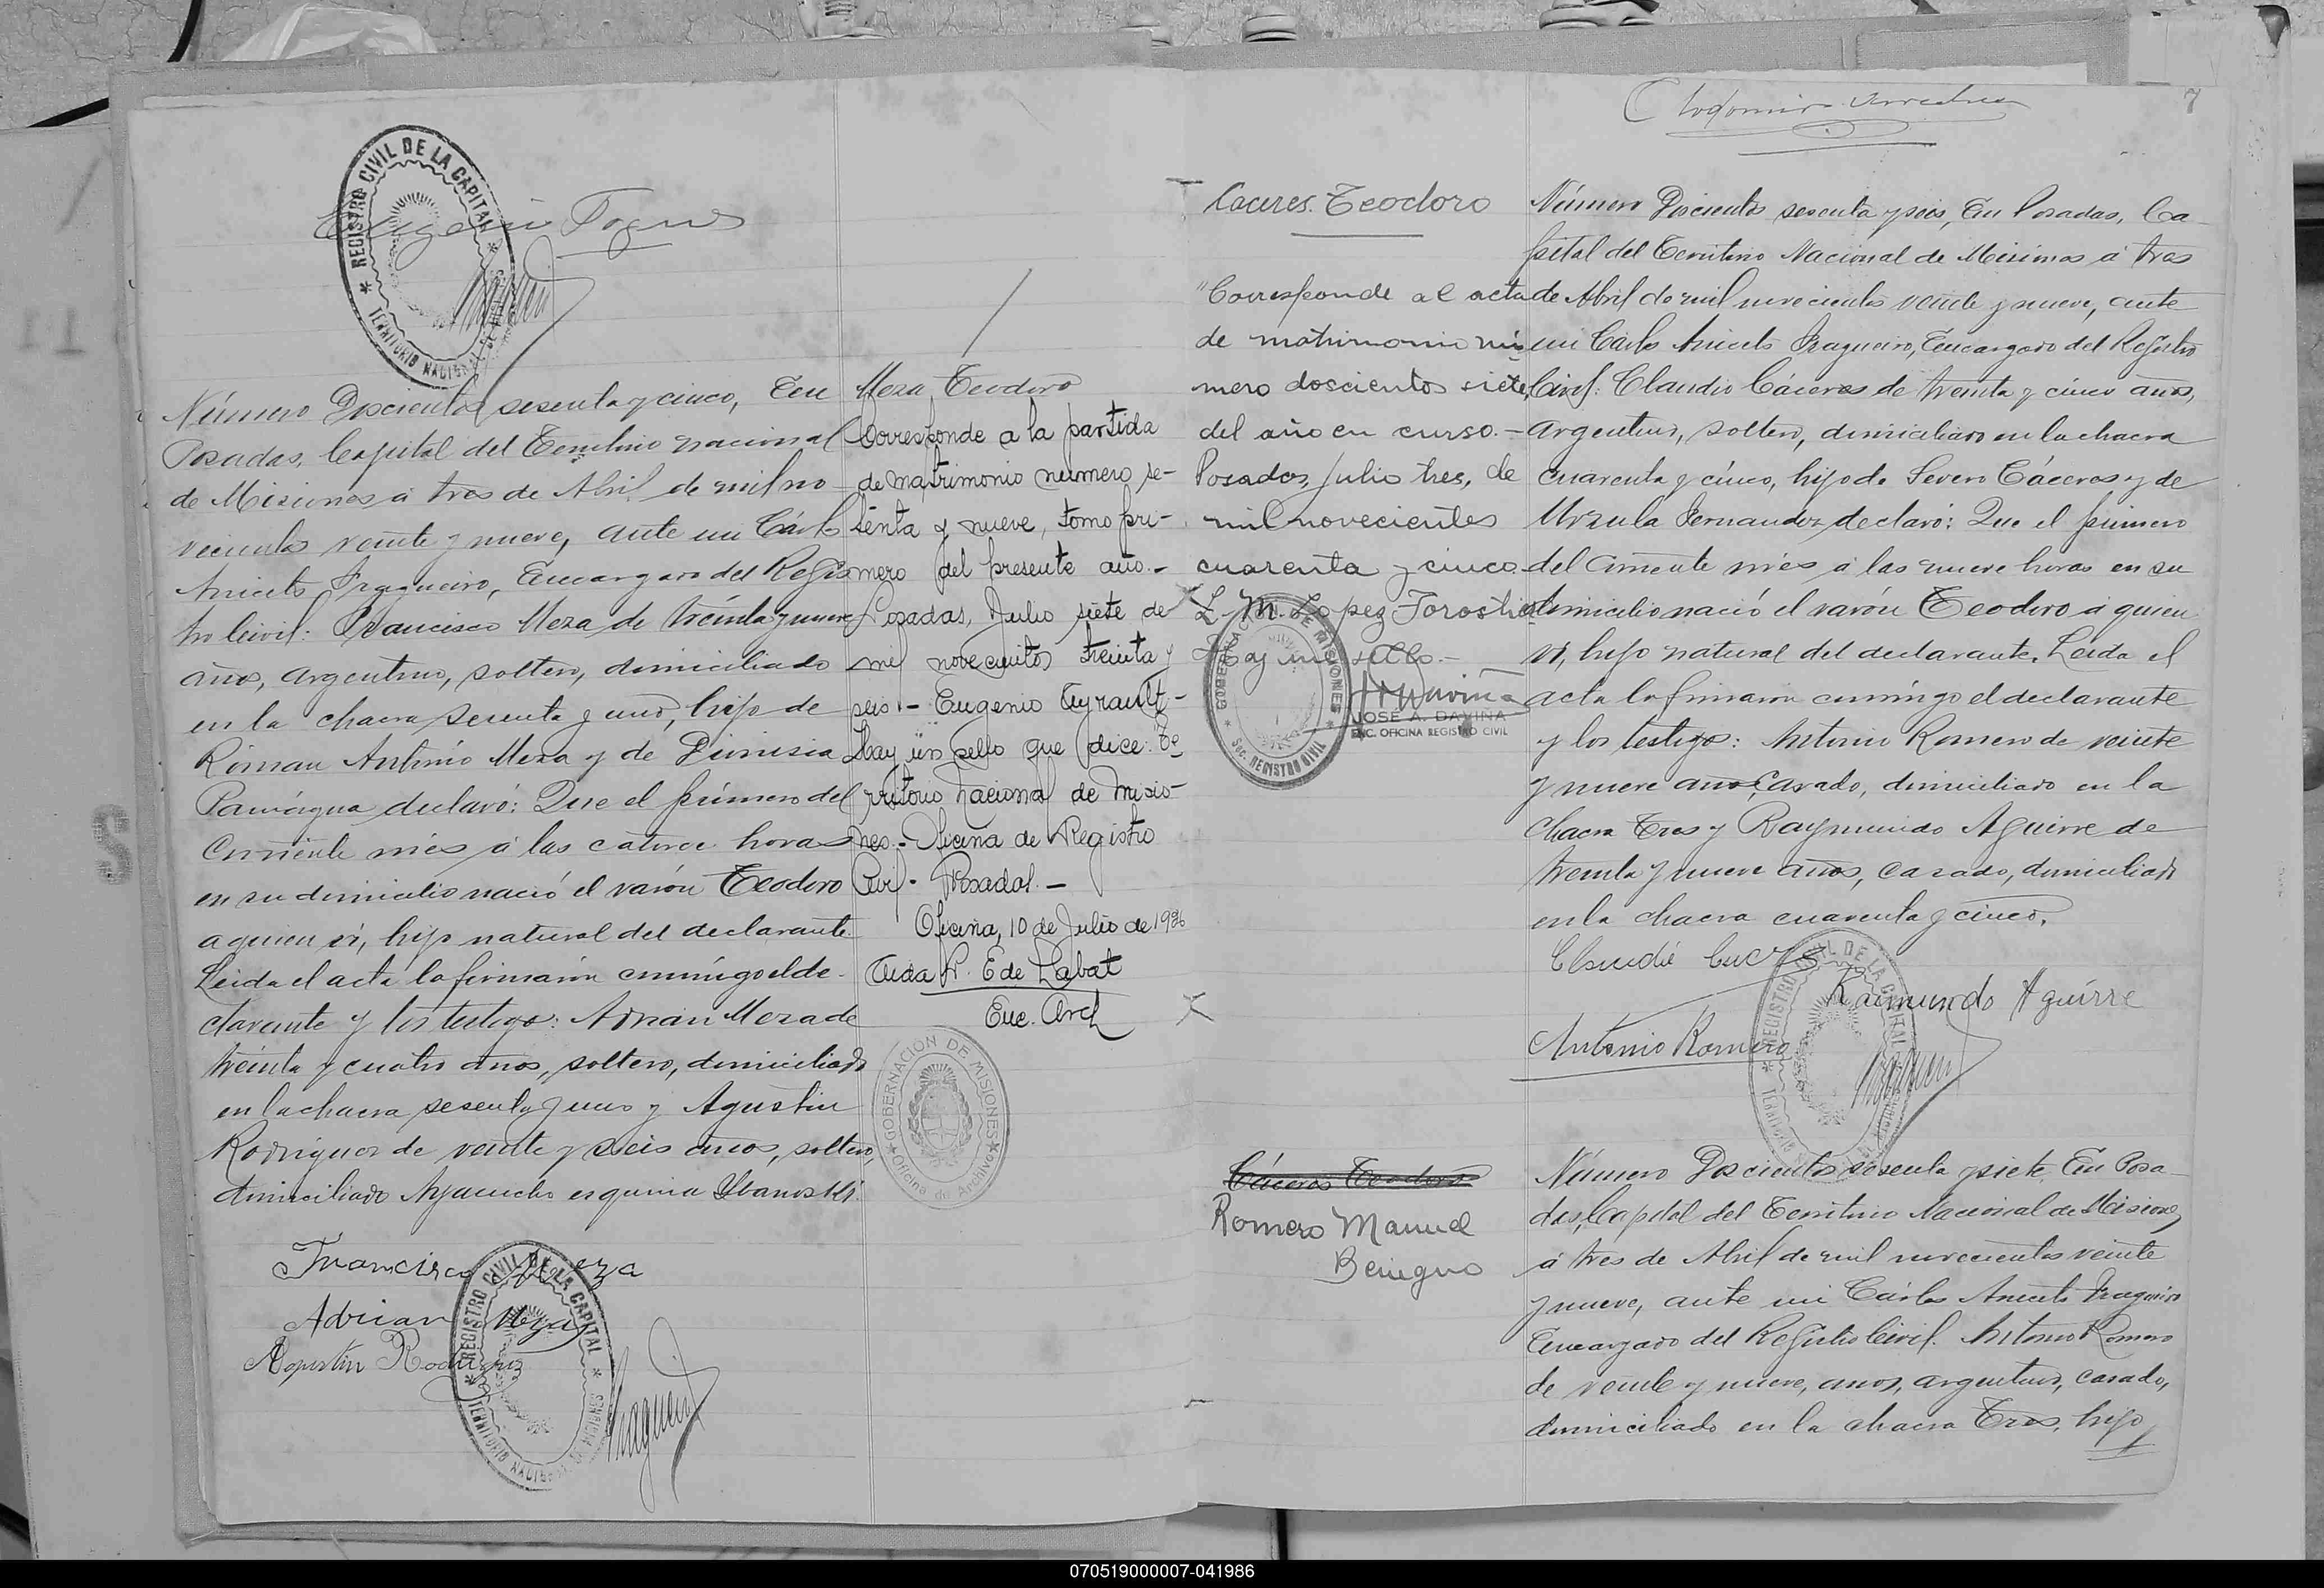 REGISTRO CIVIL DE LA CAPITAL
TERRITORIO NACIONAL DE MISIONES
Número Doscientos sesenta y cinco, En
Posadas, Capital del Territorio nacional
de Misiones á tres de Abril de mil no
vecientos veinte y nueve, ante mi Cárlos
Aniceto Fragueiro, Encargado del Regis
tro Civil: Francisco Meza de treinta y nueve
años, argentino, soltero, domiciliado
en la chacra sesenta y uno, hijo de
Róman António Meza y de Dionisia
declaró: Que el primero del
corriente més á las catorce horas
en su domicilio nació el varón Teodoro
a quien ví, hijo natural del declarante
Leida el acta la firmaron conmigo el de-
clarante y los testigos: Adrián Meza de
treinta y cuatro años, soltero, domiciliado
en la chacra sesenta y uno y Agustin
Rodriguez de veinte y seis años, soltero,
domiciliado Ayacucho esquina
Francisco Meza
Adrian Meza
Agustin Rodriguez
REGISTRO CIVIL DE LA CAPITAL
TERRITORIO NACIONAL DE MISIONES
Meza Teodoro
Corresponde a la partida
de matrimonio número se-
senta y nueve, tomo pri-
mero del presente año.-
Posadas, Julio siete de
mil novecientos treinta y
seis.- Eugenio Ayrault-
Hay un sello que dice: Te
rritorio nacional de Misio-
nes.- Oficina de Registro
Civil- Posadas.-
Oficina, 10 de Julio de 1936
Aida P. E de Labat
Enc. Arch
GOBERNACIÓN DE MISIONES
Oficina de Archivo
7
Caceres. Teodoro
"Corresponde al acta
de matrimonio nú
mero doscientos siete,
del año en curso.-
Posadas, Julio tres, de
mil novecientos
cuarenta y cinco.
L. M. Lopez Torostia
Hay un sello.-
GOBERNACION DE MISIONES
Sec. REGISTRO CIVIL
JOSÉ A. DAVIÑA
ENC. OFICINA REGISTRO CIVIL
Número Doscientos sesenta y seis, En Posadas, Ca
pital del Territorio Nacional de Misiones á tres
de Abril de mil novecientos veinte y nueve, ante
mi Cárlos Aniceto Fragueiro, Encargado del Registro
Civil: Claudio Cáceres de treinta y cinco años,
argentino, soltero, domiciliado en la chacra
cuarenta y cinco, hijo de Severo Cáceres y de
Urzula Fernandez declaró: Que el primero
del corriente més á las nueve horas en su
domicilio nació el varón Teodoro á quien
ví, hijo natural del declarante. Leida el
acta la firmaron conmigo el declarante
y los testigos: Antonio Romero de veinte
y nueve años, casado, domiciliado en la
chacra tres y Raymundo Aguirre de
treinta y nueve años, casado, domiciliado
en la chacra cuarenta y cinco.
Raimundo Aguirre
Antonio Romero
Cáceres Teodoro
Romero Manuel
Benigno
Número Doscientos sesenta y siete, En Posa
das, Capital del Territorio Nacional de Misiones,
á tres de Abril de mil novecientos veinte
y nueve, ante mi Cárlos Aniceto Fragueiro
Encargado del Registro Civil. Antonio Romero
de veinte y nueve, anos, argentino, casado,
domiciliado en la chacra Tres, hijo
070519000007-041986